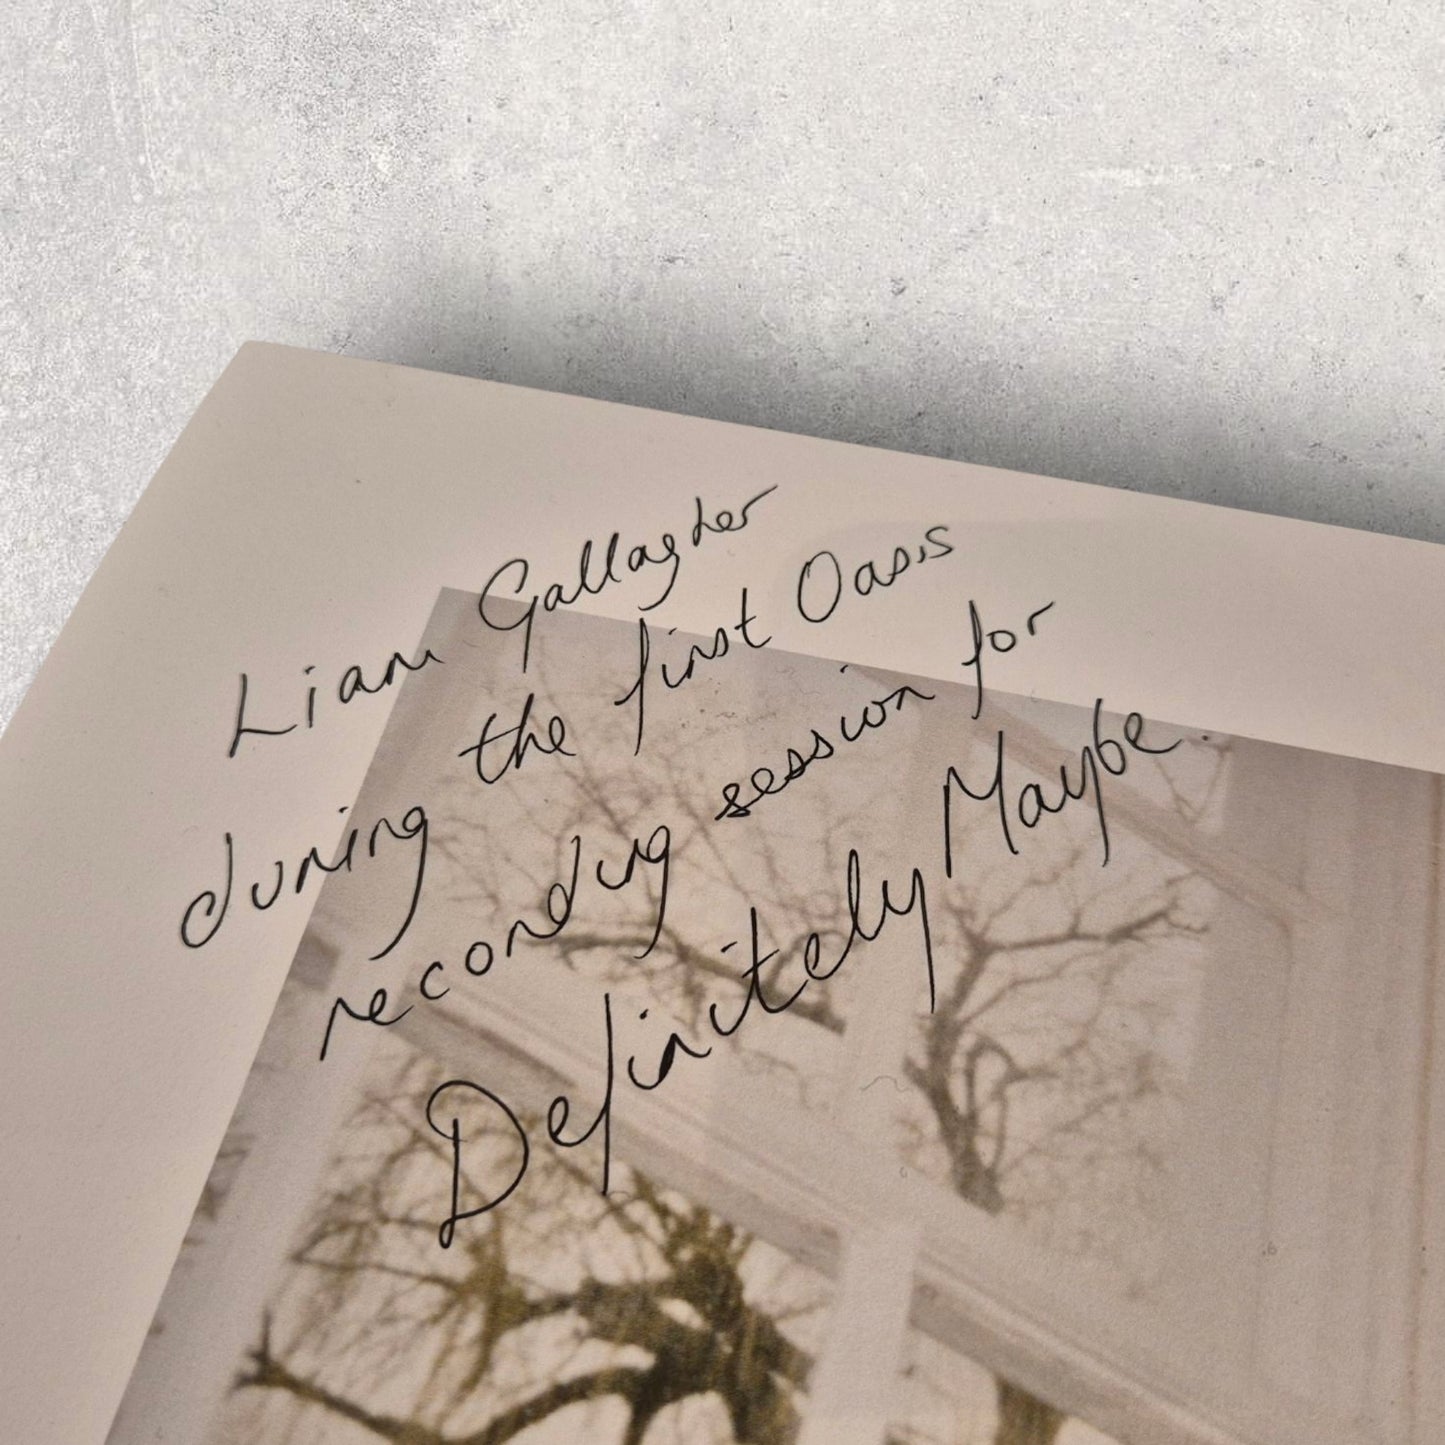 Liam Gallagher
during the first Oasis
recording session for
Definitely Maybe.